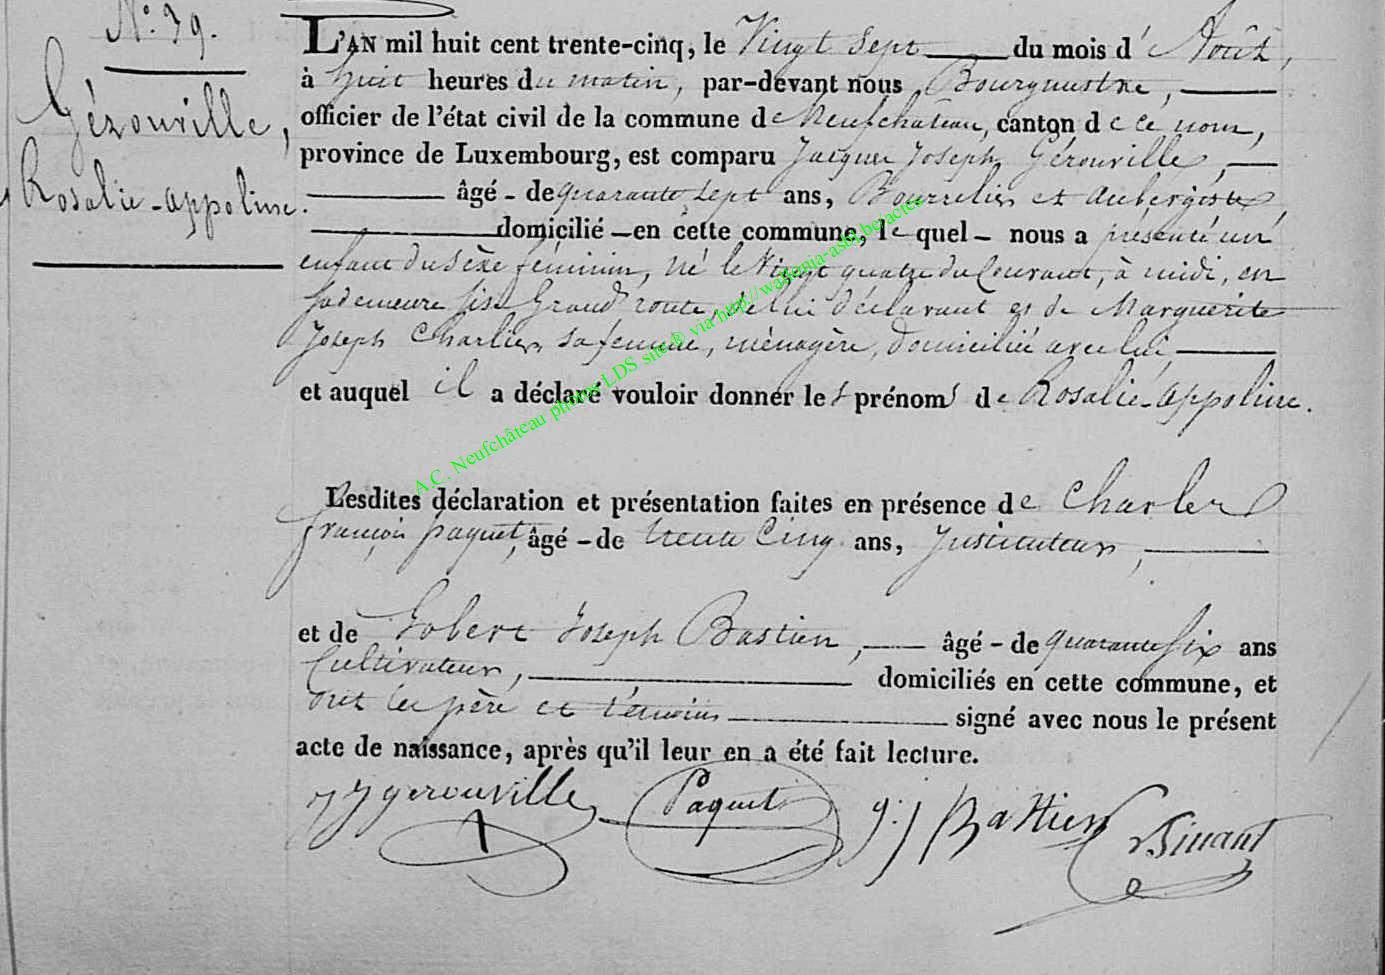 N.° 39.
Gérouville,
Rosalie-appoline.
L'AN mil huit cent trente-cinq, le Vingt Sept du mois d'Août,
à huit heures du matin, par-devant nous Bourguestre,
officier de l'état civil de la commune de Neufchâteau, canton de ce nom,
province de Luxembourg, est comparu Jacques Joseph Gérouville,
âgé - de quarante sept ans, Bourrelier et aubergiste
domicilié - en cette commune, le quel - nous a présenté un
enfant du sèxe féminin, né le vingt quatre du Courant, à midi, en
sa demeure sise Grand route, de lui déclarant et de Marguerite
Joseph Charlier sa femme, ménagère, domiciliée avec lui
et auquel il a déclaré vouloir donner les prénoms de Rosalie-appoline.
Lesdites déclaration et présentation faites en présence de Charles
françois paquet, âgé - de trente Cinq ans, Instituteur,
et de Gobert Joseph Bastien, âgé - de quarante six ans
Cultivateur, domiciliés en cette commune, et
ont les père et témoins signé avec nous le présent
acte de naissance, après qu'il leur en a été fait lecture.
JJ gerouville Paquet g: j Bastien
A.C. Neufchâteau photos LDS site ® via http://wallonia-asbl.be/actes